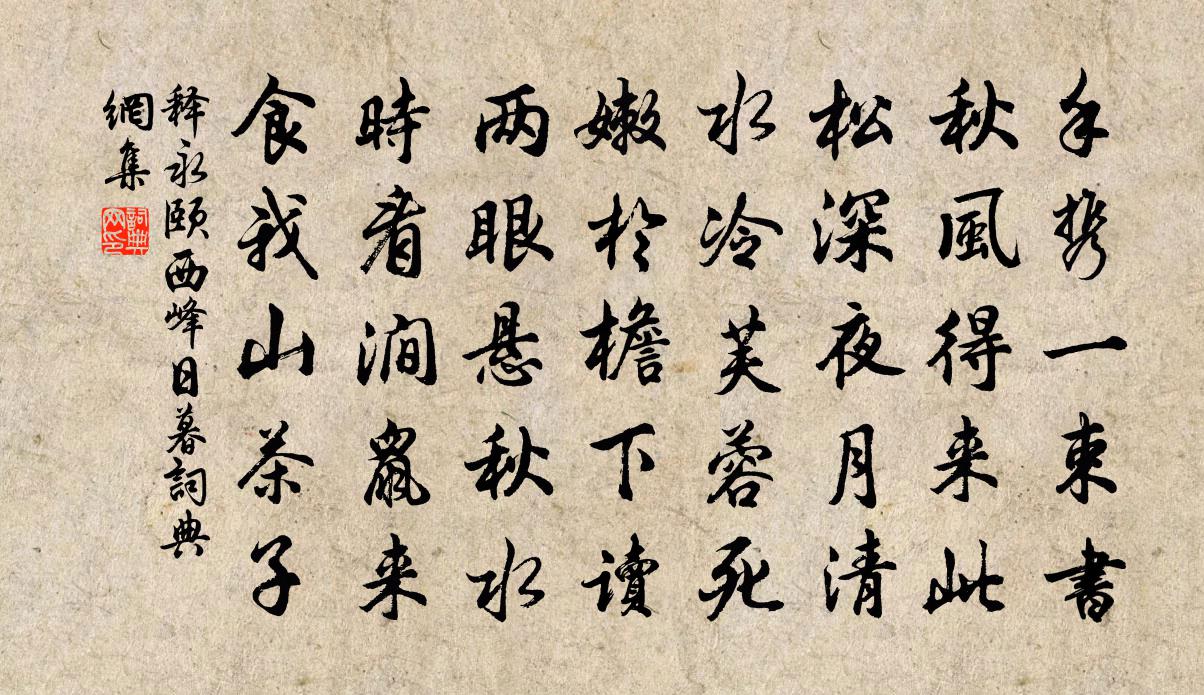 手携一束書
秋風得来此
松深夜月清
水冷芙蓉死
嫩於檐下讀
两眼悬秋水
時看澗鼠来
食我山茶子
释永颐西峰日暮詞典
網集
詞典
网印